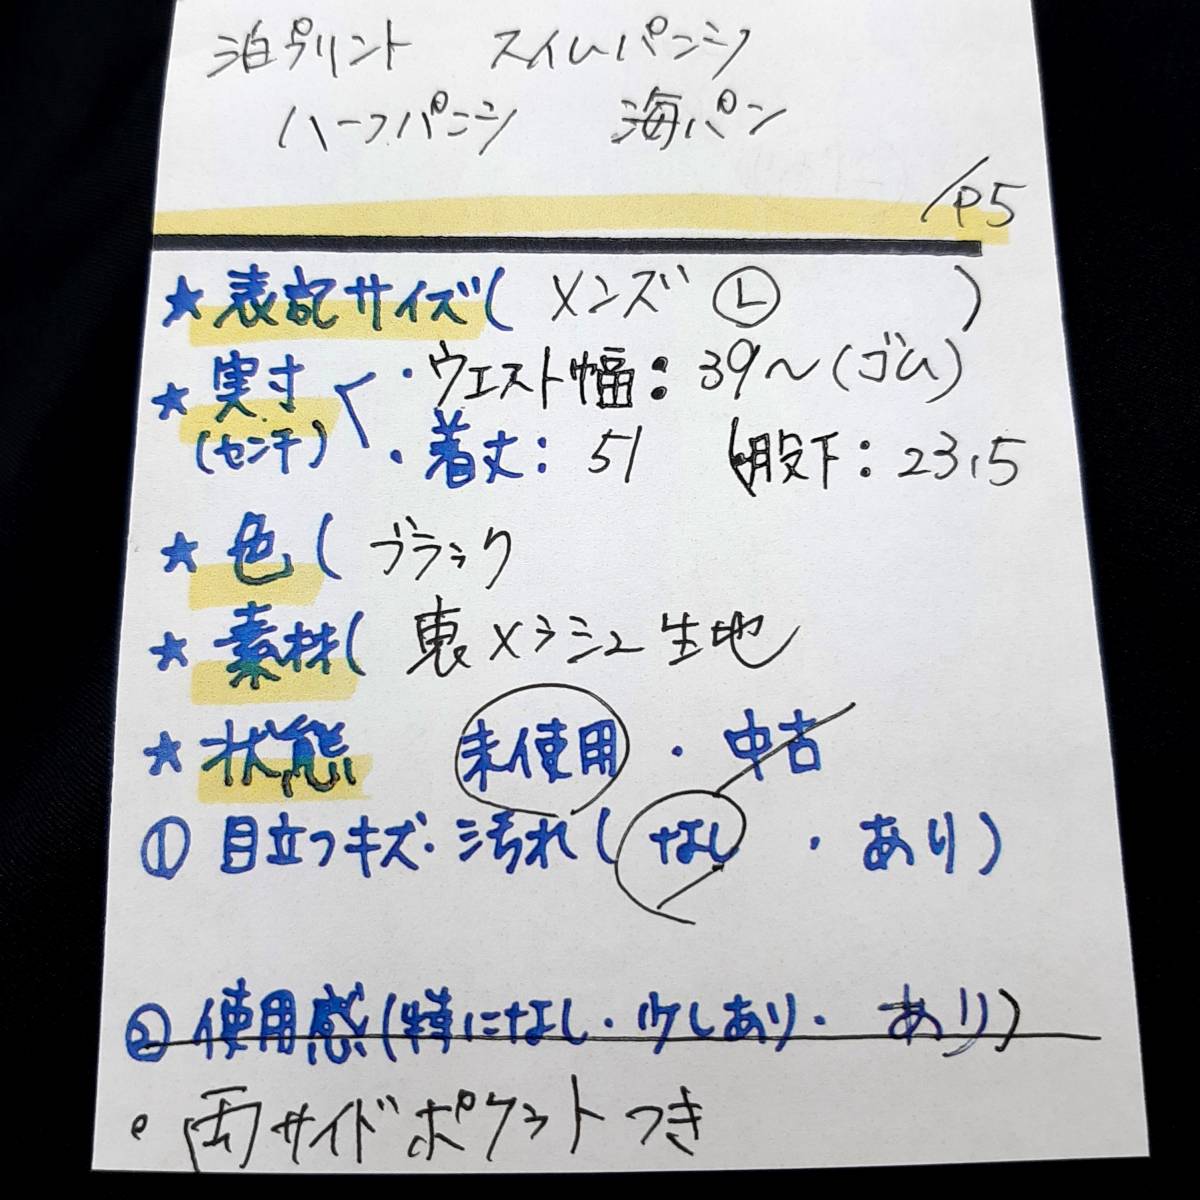 泊プリント スイムパンツ
ハーフパンツ 海パン
/P5
★表記サイズ( メンズ Ⓛ )
★実寸 ・ウエスト幅：39〜(ゴム)
(センチ) ・着丈：51 股下：23.5
★色( ブラック
★素材( 裏メッシュ生地
★状態 未使用・中古
① 目立つキズ・汚れ(なし・あり)
② 使用感(特になし・少しあり・ あり)
・両サイドポケットつき